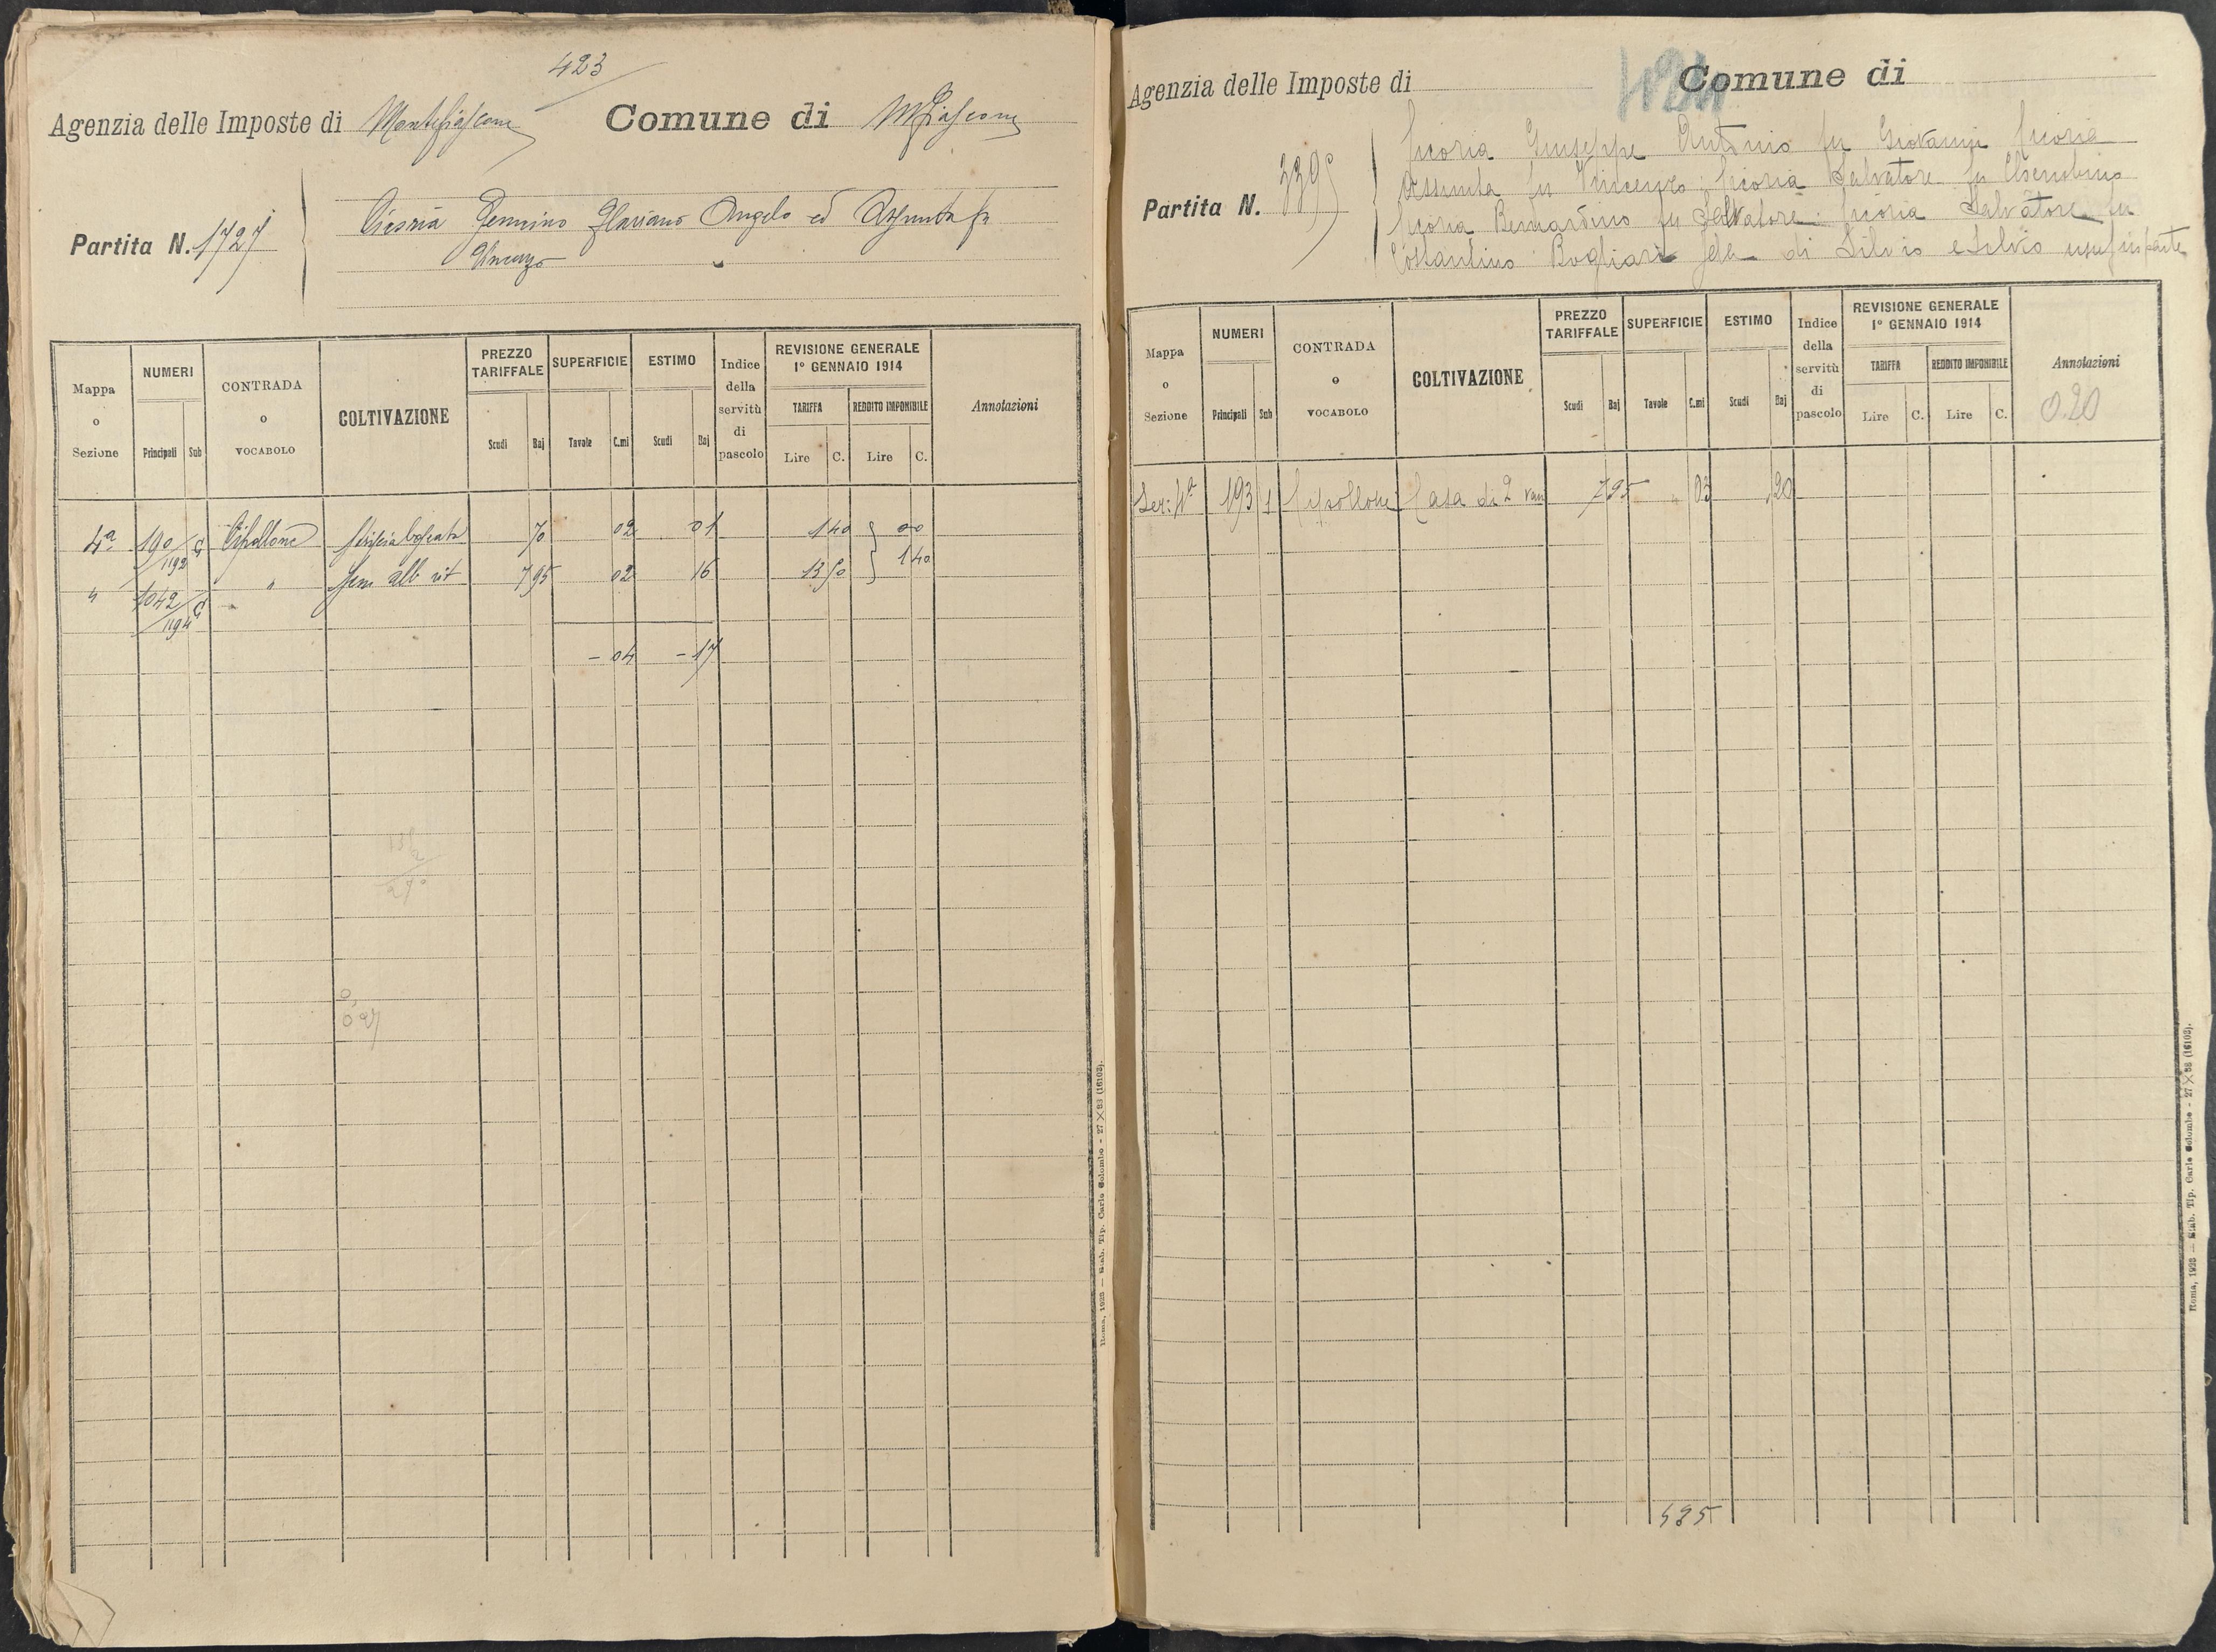 423
Agenzia delle Imposte di Montefiascone Comune di MFiascone
Partita N. 1727
Cicoria Gemmino Flaviano Angelo ed Assunta fu
Vincenzo
Mappa o Sezione
NUMERI
Principali Sub
CONTRADA o VOCABOLO
COLTIVAZIONE
PREZZO TARIFFALE
Scudi Baj
SUPERFICIE
Tavole C.mi
ESTIMO
Scudi Baj
Indice della servitù di pascolo
REVISIONE GENERALE
1° GENNAIO 1914
TARIFFA REDDITO IMPONIBILE
Lire C. Lire C.
Annotazioni
4a 190/1192 Cipollone boscata 70 02 01 1 40 00
" 1042/1194 " Sem alb vit 7 95 02 16 13 50 1 40
- 04 - 17
0,27
Roma, 1923 — Stab. Tip. Carlo Colombo - 27 × 38 (16103).
424
Agenzia delle Imposte di Comune di
Partita N.
Cicoria Giuseppe Antonio fu Giovanni Cicoria
Assunta fu Vincenzo: Cicoria Salvatore fu Cherubino
Cicoria Bernardino fu Salvatore: Cicoria Salvatore fu
Costantino Bogliari di Silvio e Silvio usuf in parte
Mappa o Sezione
NUMERI
Principali Sub
CONTRADA o VOCABOLO
COLTIVAZIONE
PREZZO TARIFFALE
Scudi Baj
SUPERFICIE
Tavole C.mi
ESTIMO
Scudi Baj
Indice della servitù di pascolo
REVISIONE GENERALE
1° GENNAIO 1914
TARIFFA REDDITO IMPONIBILE
Lire C. Lire C.
Annotazioni
0.20
Sez: 4a 193 1 Cipollone Casa di 2 vani 7 95 " 03 20
Roma, 1923 — Stab. Tip. Carlo Colombo - 27 × 38 (16103).